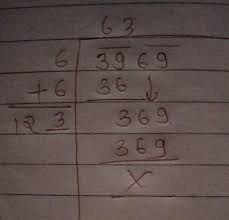 63
6 39 69
+6 36 ↓
123 369
369
x